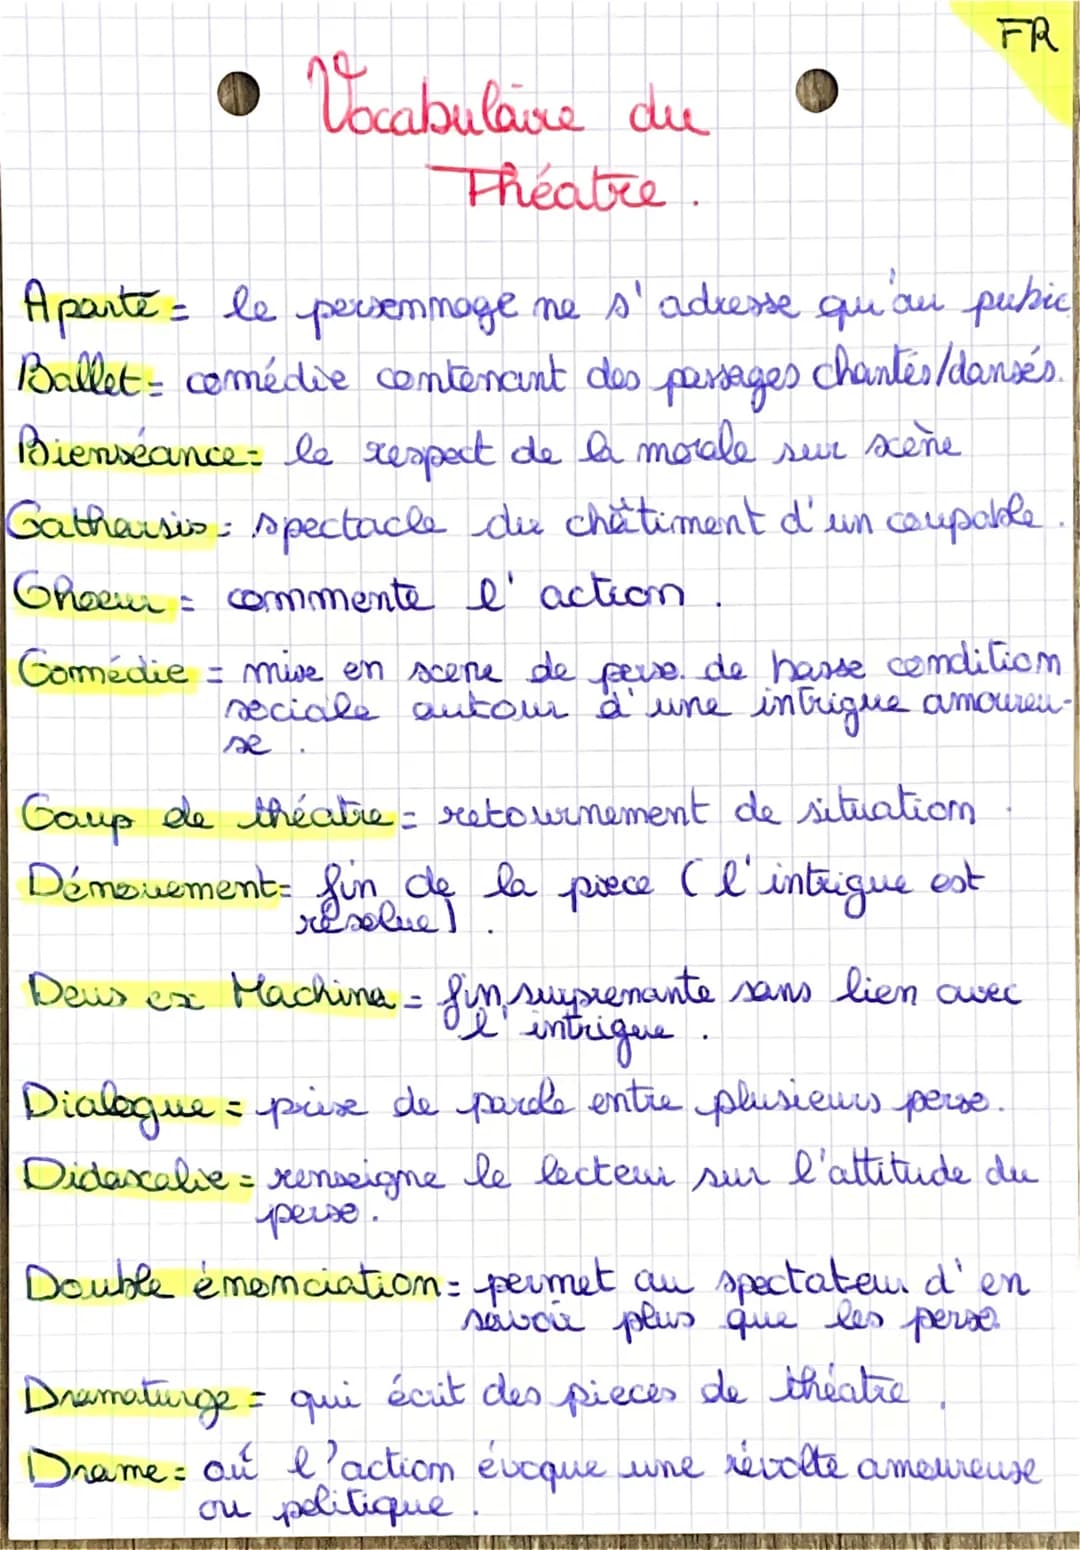 FR
Vocabulaire du
Théatre.
Aparté = le personnage ne s'adresse qu'au pubic
Ballet = comédie contenant des passages chantés/dansés.
Bienséance = le respect de la morale sur scène
Catharsis = spectacle du châtiment d'un coupable.
Choeur = commente l'action.
Comédie = mise en scene de perso. de basse condition
sociale autour d'une intrigue amoureu-
se.
Coup de théatre = retournement de situation.
Dénouement = fin de la piece (l'intrigue est
résolue).
Deus ex Machina = fin surprenante sans lien avec
l'intrigue.
Dialogue = prise de parole entre plusieurs perso.
Didascalie = renseigne le lecteur sur l'attitude du
perso.
Double énonciation = permet au spectateur d'en
savoir plus que les perso.
Dramaturge = qui écrit des pieces de théatre.
Drame = où l'action évoque une révolte amoureuse
ou politique.